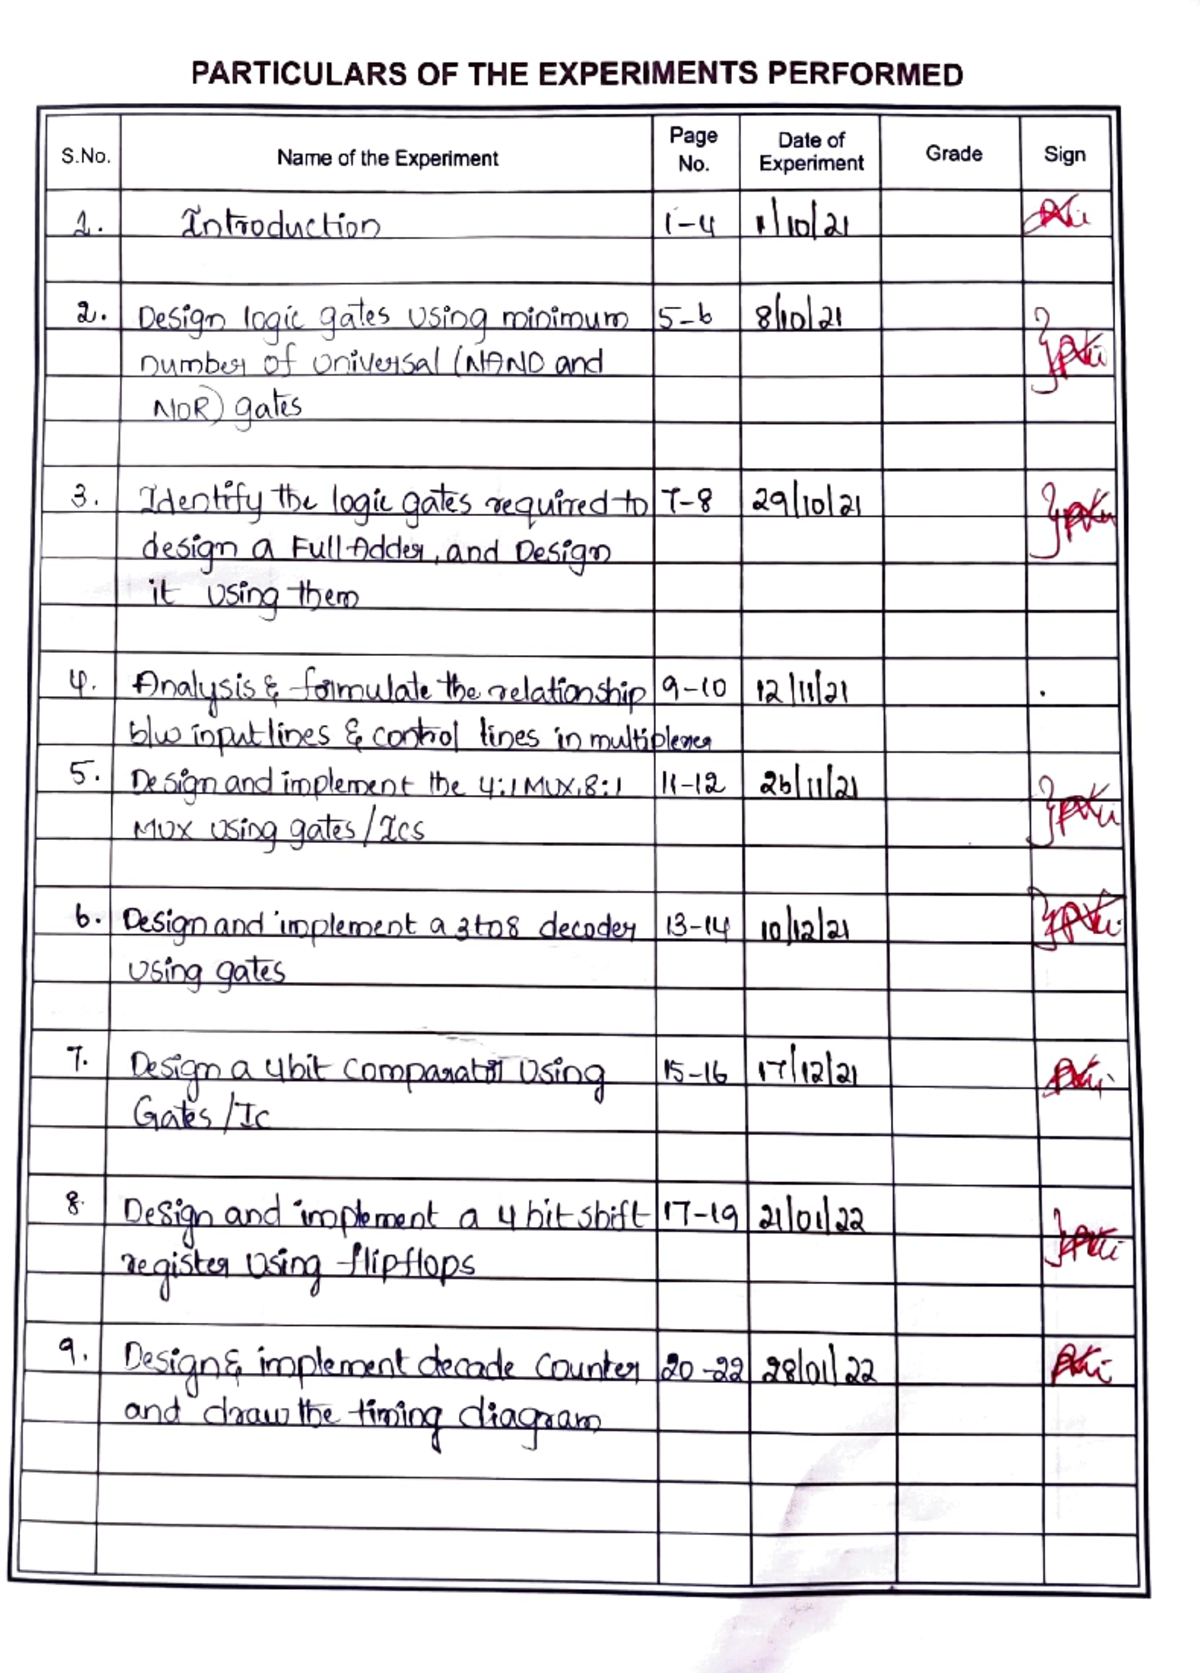 PARTICULARS OF THE EXPERIMENTS PERFORMED
S.No. Name of the Experiment Page No. Date of Experiment Grade Sign
1. Introduction 1-4 1/10/21
2. Design logic gates using minimum 5-6 8/10/21
number of universal (NAND and
NOR) gates
3. Identify the logic gates required to 7-8 29/10/21
design a Full Adder, and Design
it using them
4. Analysis & formulate the relationship 9-10 12/11/21
b/w input lines & control lines in multiplexer
5. Design and implement the 4:1 MUX, 8:1 11-12 26/11/21
MUX using gates/Ics
6. Design and implement a 3to8 decoder 13-14 10/12/21
using gates
7. Design a 4bit comparator using 15-16 17/12/21
Gates/Ic
8. Design and implement a 4 bit shift 17-19 21/01/22
register using flipflops
9. Design & implement decade counter 20-22 28/01/22
and draw the timing diagram